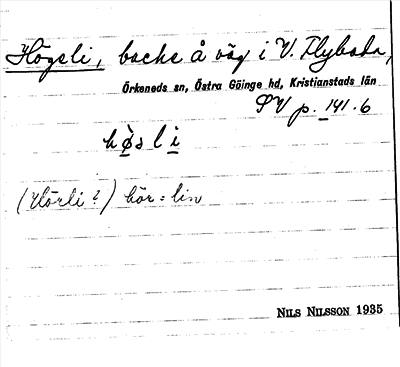 Högsli, backe å väg i V. Flyboda,
Örkeneds sn, Östra Göinge hd, Kristianstads län
SV p. 141.6
hø̀sli̱
(Hörli?) hör = lin
NILS NILSSON 1935